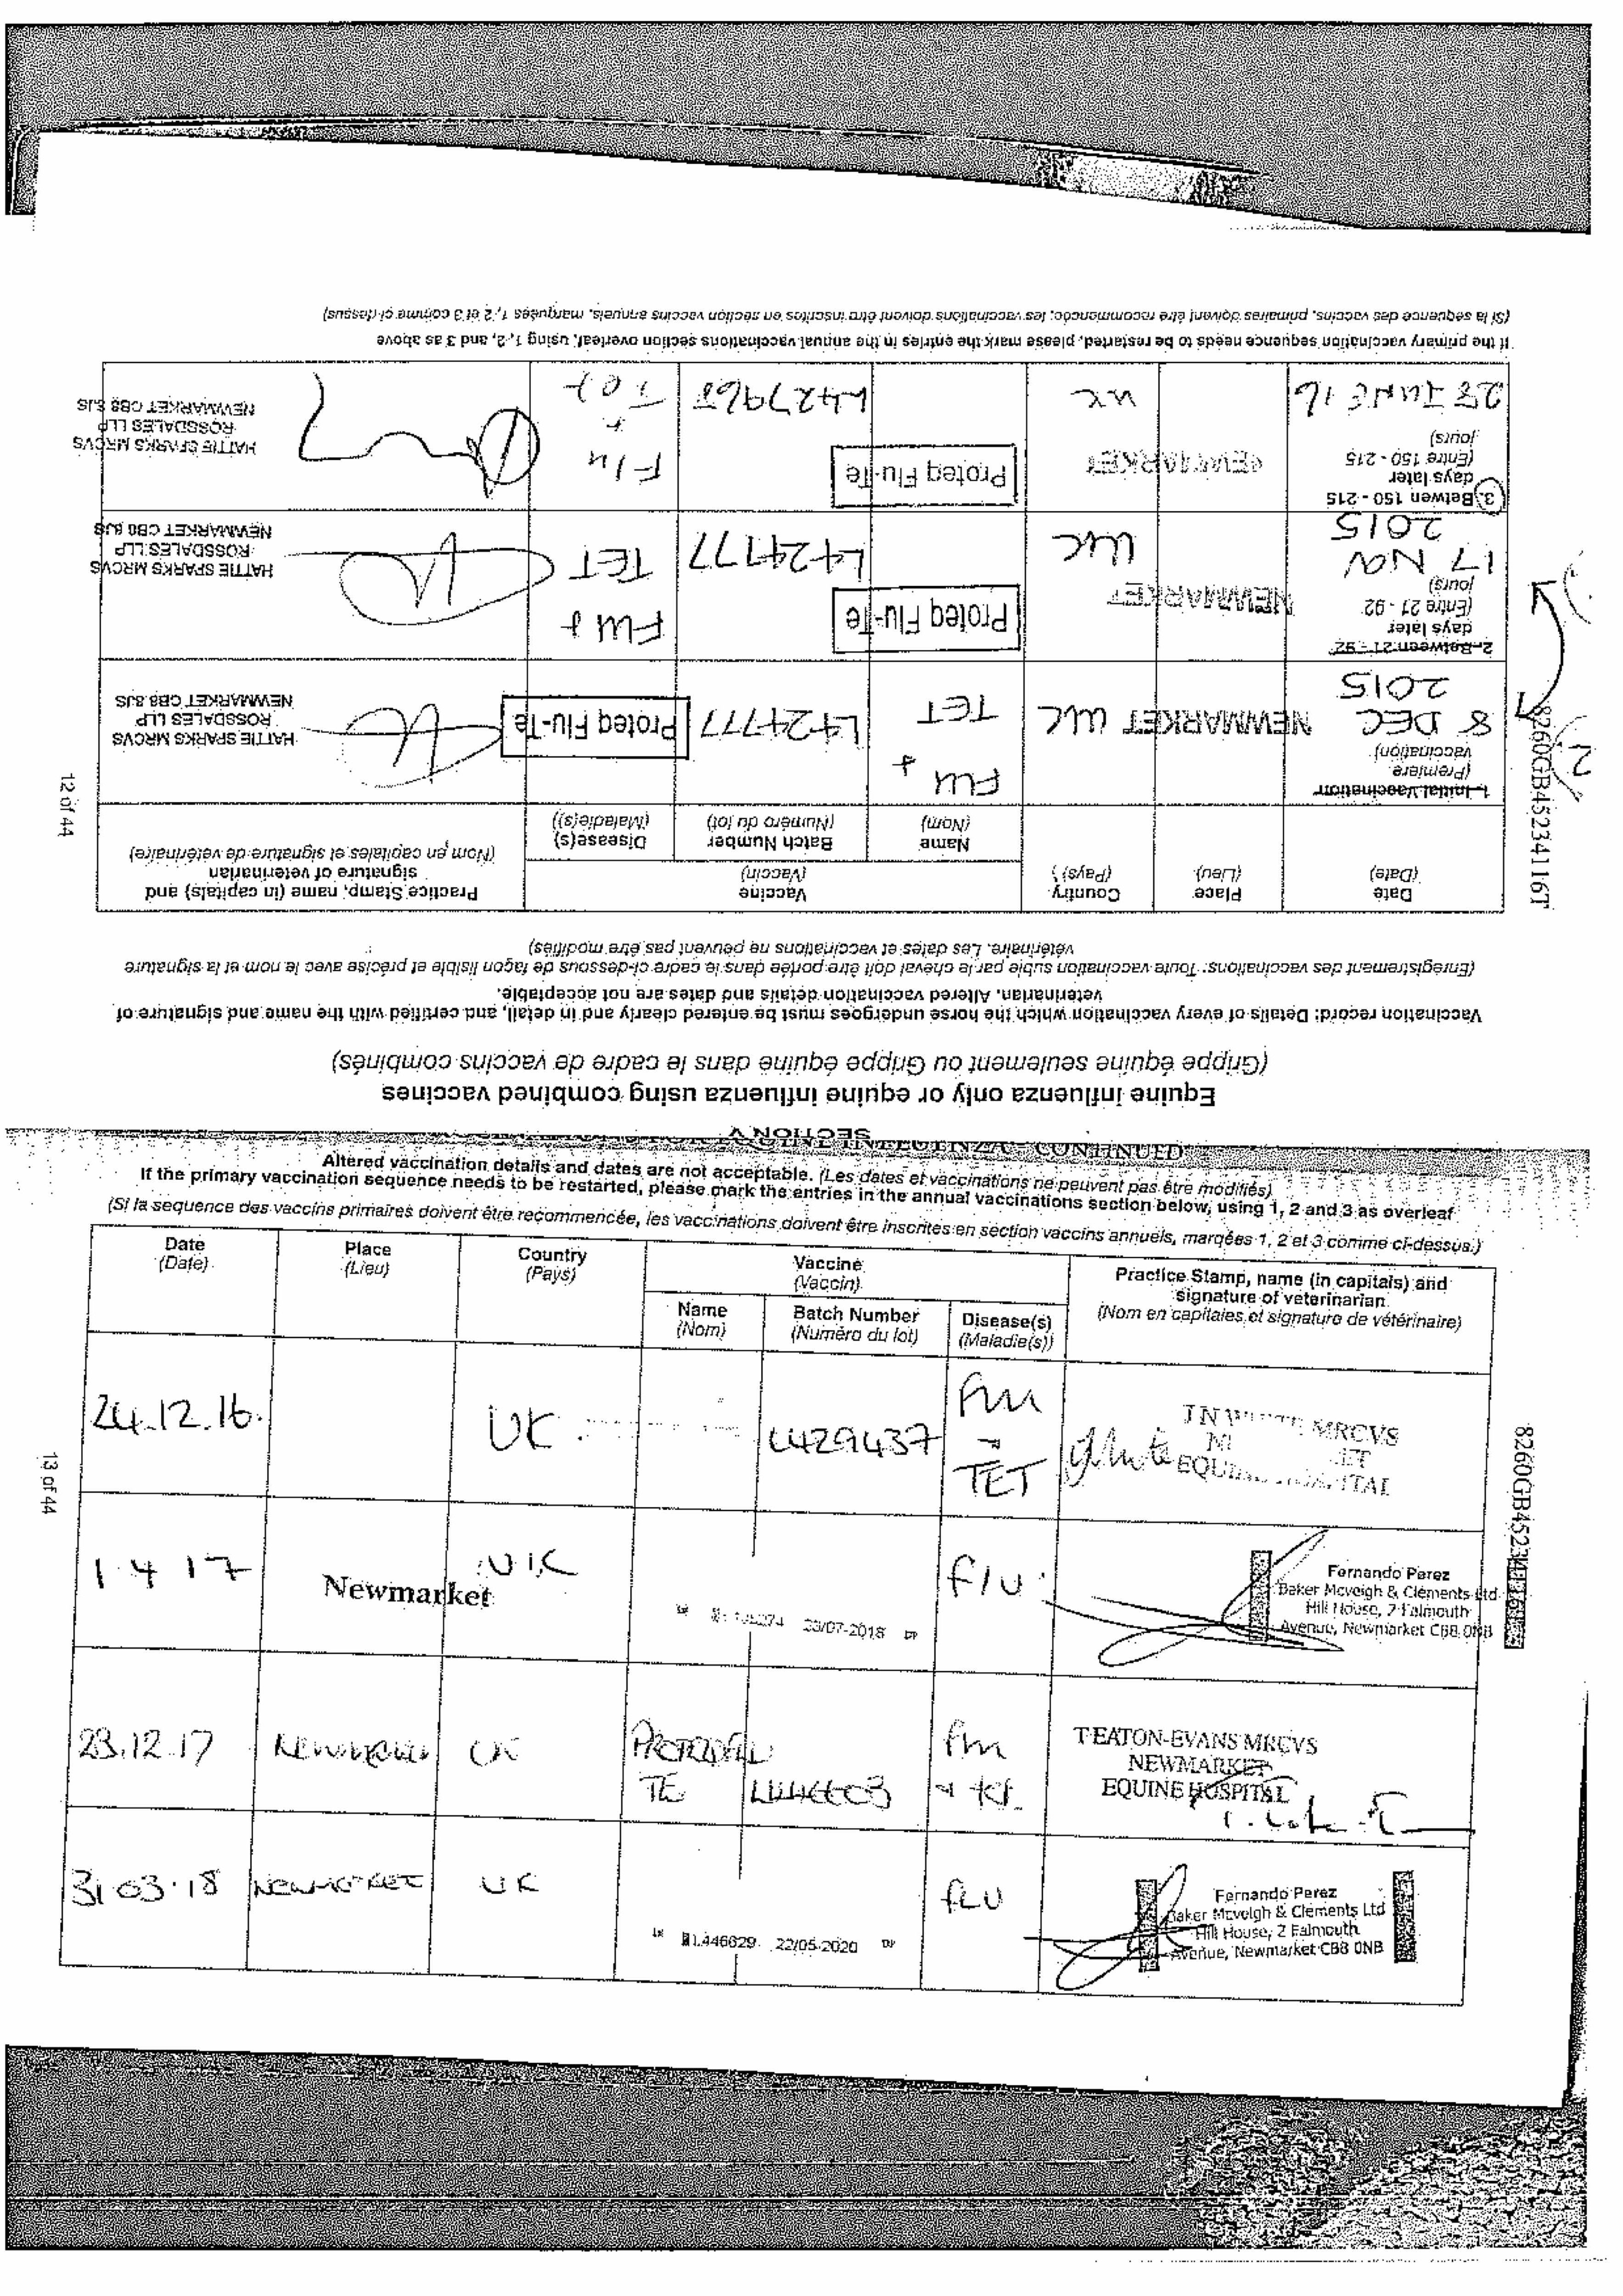 SECTION V
Equine influenza only or equine influenza using combined vaccines
(Grippe équine seulement ou Grippe équine dans le cadre de vaccins combinés)
Vaccination record: Details of every vaccination which the horse undergoes must be entered clearly and in detail, and certified with the name and signature of
veterinarian. Altered vaccination details and dates are not acceptable.
(Enregistrement des vaccinations: Toute vaccination subie par le cheval doit être portée dans le cadre ci-dessous de façon lisible et précise avec le nom et la signature
vétérinaire. Les dates et vaccinations ne peuvent pas être modifiés)
Date
(Date)
Place
(Lieu)
Country
(Pays)
Vaccine
(Vaccin)
Name
(Nom)
Batch Number
(Numéro du lot)
Disease(s)
(Maladie(s))
Practice Stamp, name (in capitals) and
signature of veterinarian
(Nom en capitales et signature de vétérinaire)
1. Initial Vaccination
(Premiere
vaccination)
8 DEC
2015
NEWMARKET
UK
FLU
+
TET
L424777
Proteq Flu-Te
HATTIE SPARKS MRCVS
ROSSDALES LLP
NEWMARKET CB8 8JS
2. Between 21 - 92
days later
(Entre 21 - 92
jours)
17 NOV
2015
NEWMARKET
UK
Proteq Flu-Te
L424777
FLU +
TET
HATTIE SPARKS MRCVS
ROSSDALES LLP
NEWMARKET CB8 8JS
3. Betwen 150 - 215
days later
(Entre 150 - 215
jours)
28 JUNE 16
NEWMARKET
UK
Proteq Flu-Te
L427968
Flu
+
Tet
HATTIE SPARKS MRCVS
ROSSDALES LLP
NEWMARKET CB8 8JS
If the primary vaccination sequence needs to be restarted, please mark the entries in the annual vaccinations section overleaf, using 1, 2, and 3 as above
(Si la séquence des vaccins, primaires doivent être recommencée, les vaccinations doivent être inscrites en section vaccins annuels, marquées 1, 2 et 3 comme ci-dessus)
12 of 44
8260GB45234116T
CONTINUED
Altered vaccination details and dates are not acceptable. (Les dates et vaccinations ne peuvent pas être modifiés)
If the primary vaccination sequence needs to be restarted, please mark the entries in the annual vaccinations section below, using 1, 2 and 3 as overleaf
(Si la sequence des vaccins primaires doivent être recommencée, les vaccinations doivent être inscrites en section vaccins annuels, marqées 1, 2 et 3 comme ci-dessus.)
Date
(Date)
Place
(Lieu)
Country
(Pays)
Vaccine
(Vaccin)
Name
(Nom)
Batch Number
(Numéro du lot)
Disease(s)
(Maladie(s))
Practice Stamp, name (in capitals) and
signature of veterinarian
(Nom en capitales et signature de vétérinaire)
24.12.16.
UK
L429437
Flu
TET
MRCVS
1 4 17
Newmarket
UK
23/07-2018
flu
Fernando Perez
Baker Mcveigh & Clements Ltd
Hill House, 2 Falmouth
Avenue, Newmarket CB8 0NB
23.12.17
NEWMARKET
UK
TE
T EATON-EVANS MRCVS
NEWMARKET
EQUINE HOSPITAL
31.03.18
NEWMARKET
UK
22/05-2020
FLU
Fernando Perez
Baker Mcveigh & Clements Ltd
Hill House, 2 Falmouth
Avenue, Newmarket CB8 0NB
13 of 44